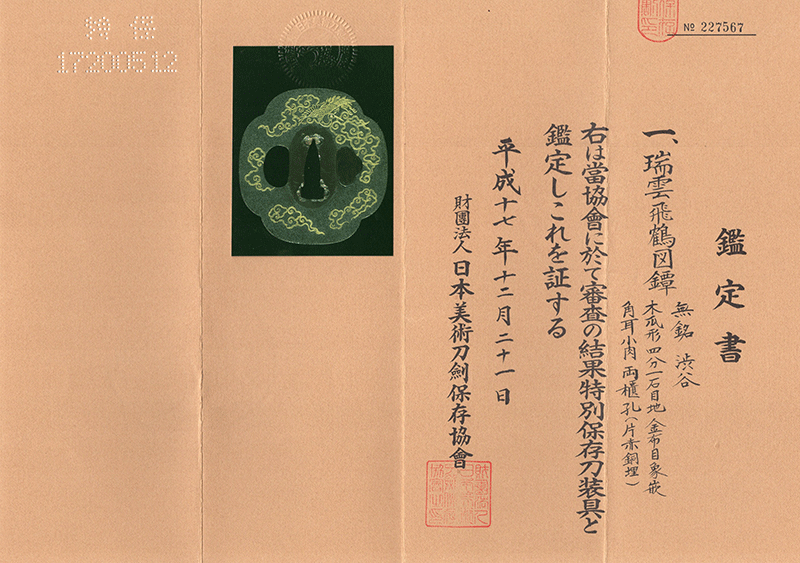 № 227567
鑑定書
一、瑞雲飛鶴図鐔
無銘 渋谷
木瓜形 四分一石目地 金布目象嵌
角耳小肉 両櫃孔(片赤銅埋)
右は當協會に於て審査の結果特別保存刀装具と
鑑定しこれを証する
平成十七年十二月二十一日
財團法人 日本美術刀劍保存協會
特保
17200512